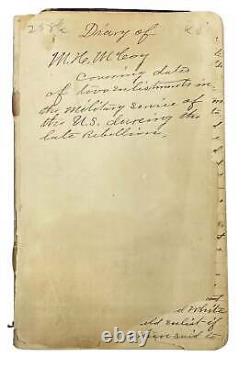 258/2
Diary of
M.H. McCoy
Covering dates
of two enlistments in
the military service of
the U.S. during the
late Rebellion.
d White
old enlist if
men said to